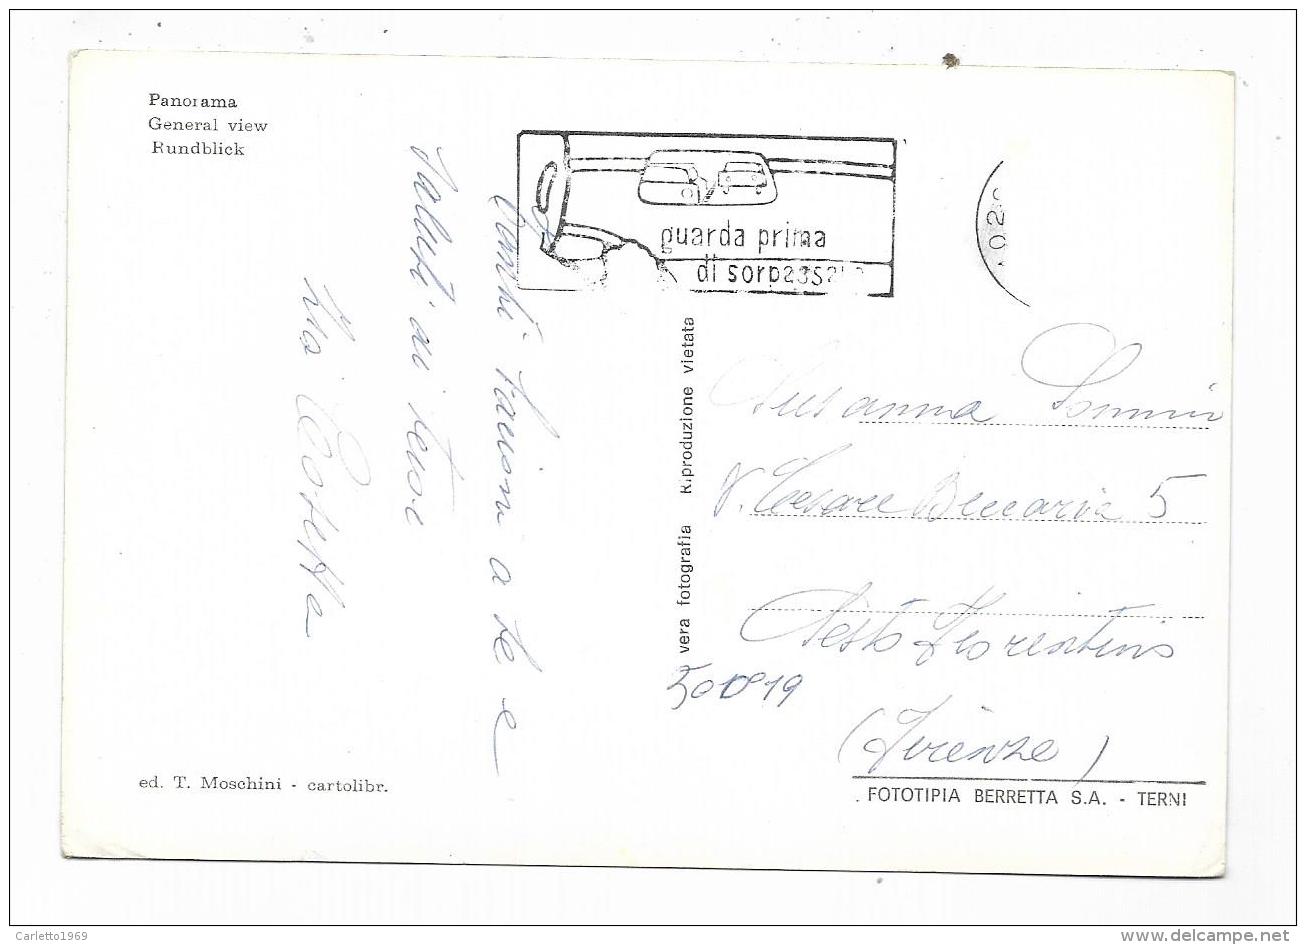 Panorama
General view
Rundblick
guarda prima
di sorpassa
Tanti bacioni a te e
saluti ai tuoi
Zia Cosetta
vera fotografia Riproduzione vietata
Susanna
V. Cesare Beccaria 5
Sesto Fiorentino
50019
(Firenze)
ed. T. Moschini - cartolibr.
. FOTOTIPIA BERRETTA S.A. - TERNI
Carletto1969
delcampe.net